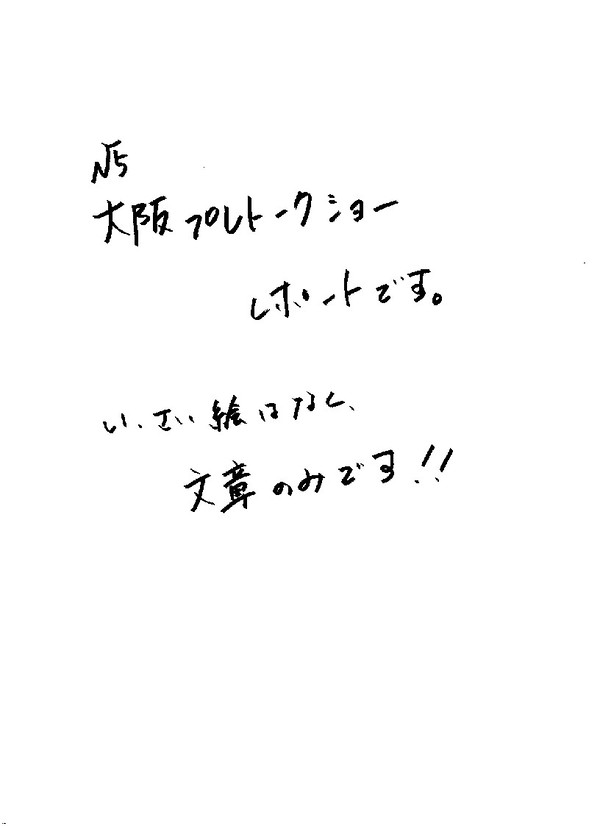 √5
大阪プレトークショー
レポートです。
いっさい絵はなく、
文章のみです!!